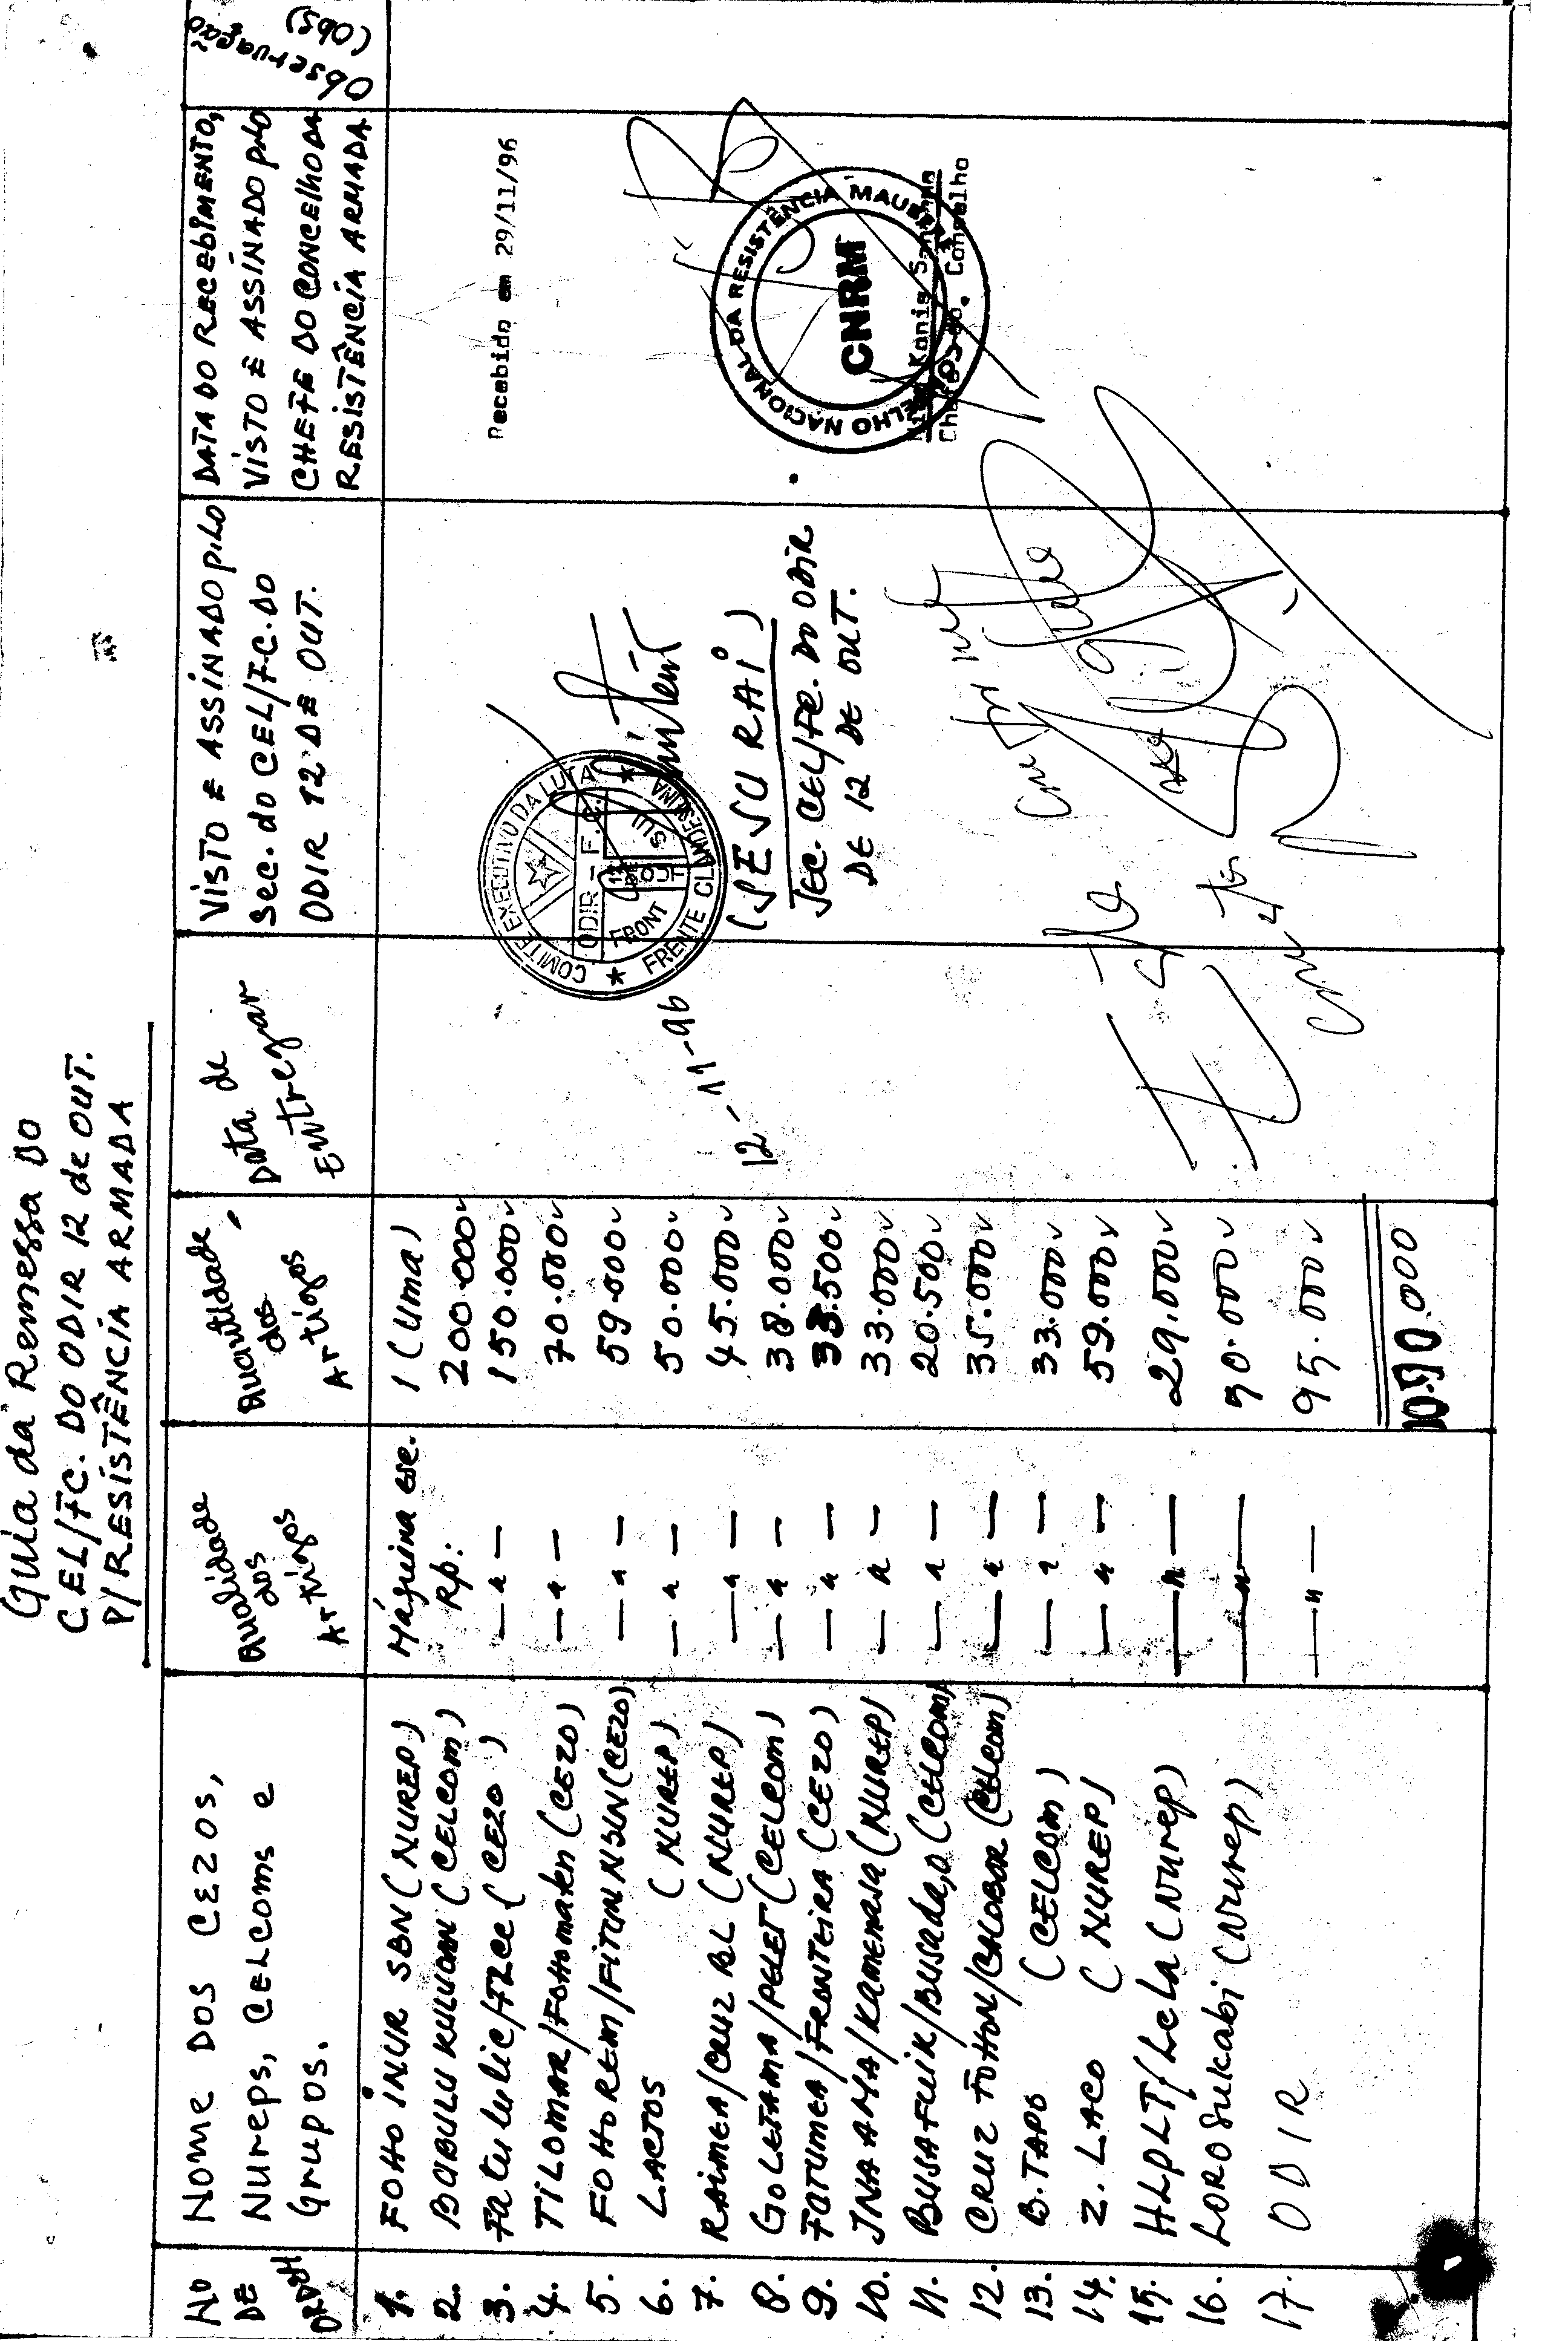 Guia da Remessa DO
CEL/FC. DO ODIR 12 de OUT.
P/RESISTÊNCIA ARMADA
NO DE ORDEM
NOME DOS CEZOS,
Nureps, CELCOMS e
Grupos.
Qualidade dos Artigos
Quantidade dos Artigos
Data de Entregar
VISTO E ASSINADO pelo
Sec. do CEL/FC. DO
ODIR 12 DE OUT.
DATA DO RECEBIMENTO,
VISTO E ASSINADO pelo
CHEFE DO CONCELHO DA
RESISTÊNCIA ARMADA
Observação
(Obs)
1. FOHO INUR SBN (NUREP) Máquina esc. 1 (Uma)
2. BABULU KULUOAN (CELCOM) Rp: 200.000
3. Fatululic/ (CEZO) — " — 150.000
4. TILOMAR/FOHOmaten (CEZO) — " — 70.000
5. FOHOREM/FITUN NBUN (CEZO) — " — 59.000
6. LACTOS (NUREP) — " — 50.000
7. RAIMEA/CRUZ BL (NUREP) — " — 45.000
8. GOLETAMA/PELET (CELCOM) — " — 38.000
9. FATUMEA/FRONTEIRA (CEZO) — " — 33.500
10. INA AMA/KAMENASA (NUREP) — " — 33.000
11. BUSA FUIK/BUSA (CELCOM) — " — 20.500
12. CRUZ FOHON/ (CELCOM) — " — 35.000
13. B. TAPO (CELCOM) — " — 33.000
14. Z. LACO (NUREP) — " — 59.000
15. HLPLT/Lela (Nurep) — " — 29.000
16. LORO Sukabi (Nurep) — " — 90.000
17. ODIR — " — 95.000
.000
12-11-96
COMITE EXECUTIVO DA LUTA
ODIR – F.C.
12 DE OUT
FRONT SUL
FRENTE CLANDESTINA
(SESU RAI)
SEC. CEL/FC. DO ODIR
DE 12 DE OUT.
Recebido em 29/11/96
CONSELHO NACIONAL DA RESISTÊNCIA MAUBERE
CNRM
Konis Santana
Chefe do Conselho